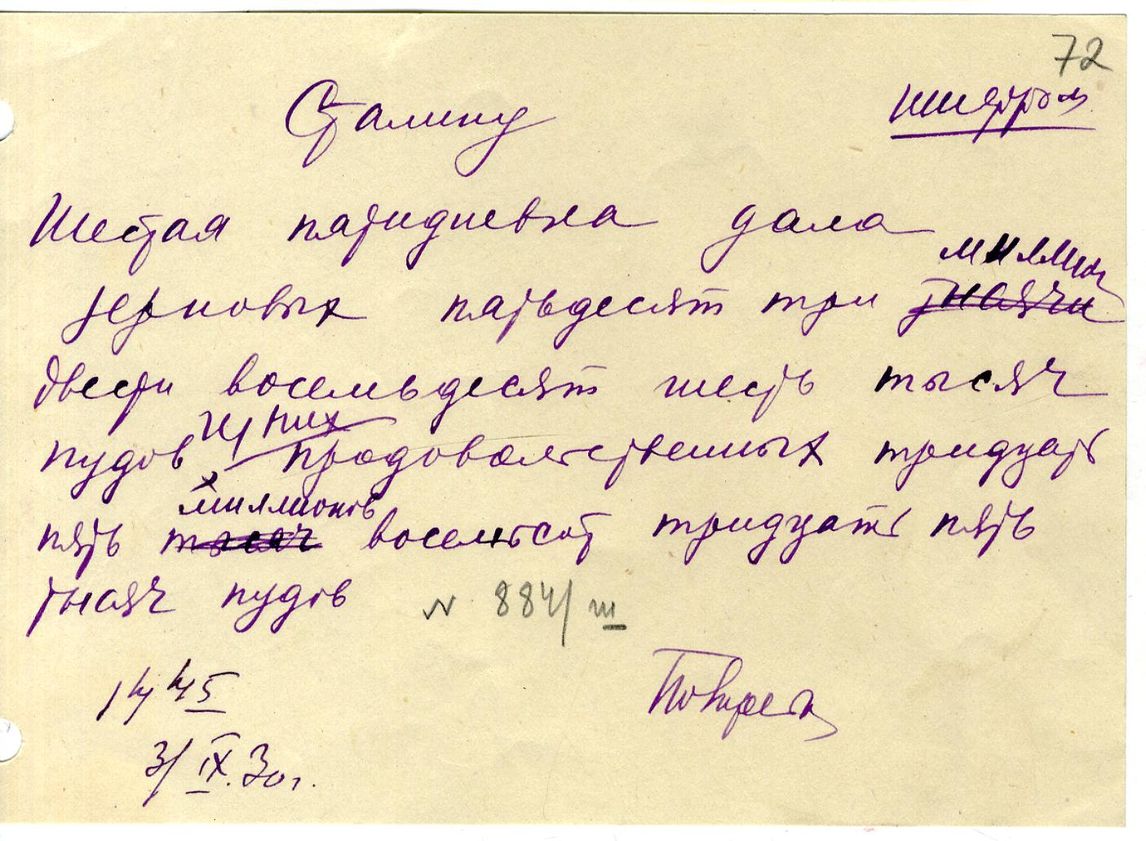 72
Сталину шифром
Шестая пятидневка дала
миллиона
зерновых пятьдесят три тысячи
двести восемьдесят шесть тысяч
из них
пудов продовольственных тридцать
миллионов
пять тысяч восемьсот тридцать пять
тысяч пудов N 884/ш
14 45
3/IX.30г.